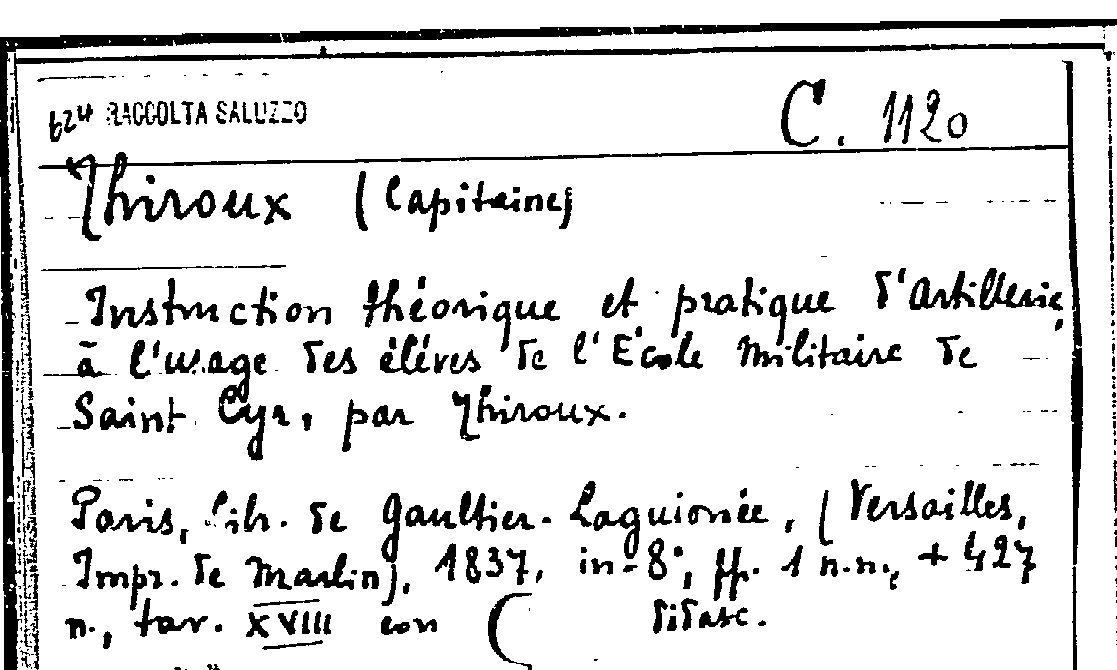 624 RACCOLTA SALUZZO
C. 1120
Thiroux (Capitaine)
Instruction théorique et pratique d'Artillerie,
à l'usage des élèves de l'École Militaire de
Saint Cyr, par Thiroux.
Paris, libr. de Gaultier-Laguionée, (Versailles,
Impr. de Marlin), 1837, in-8°, ff. 1 n.n., + 427
n., tav. XVIII con didasc.